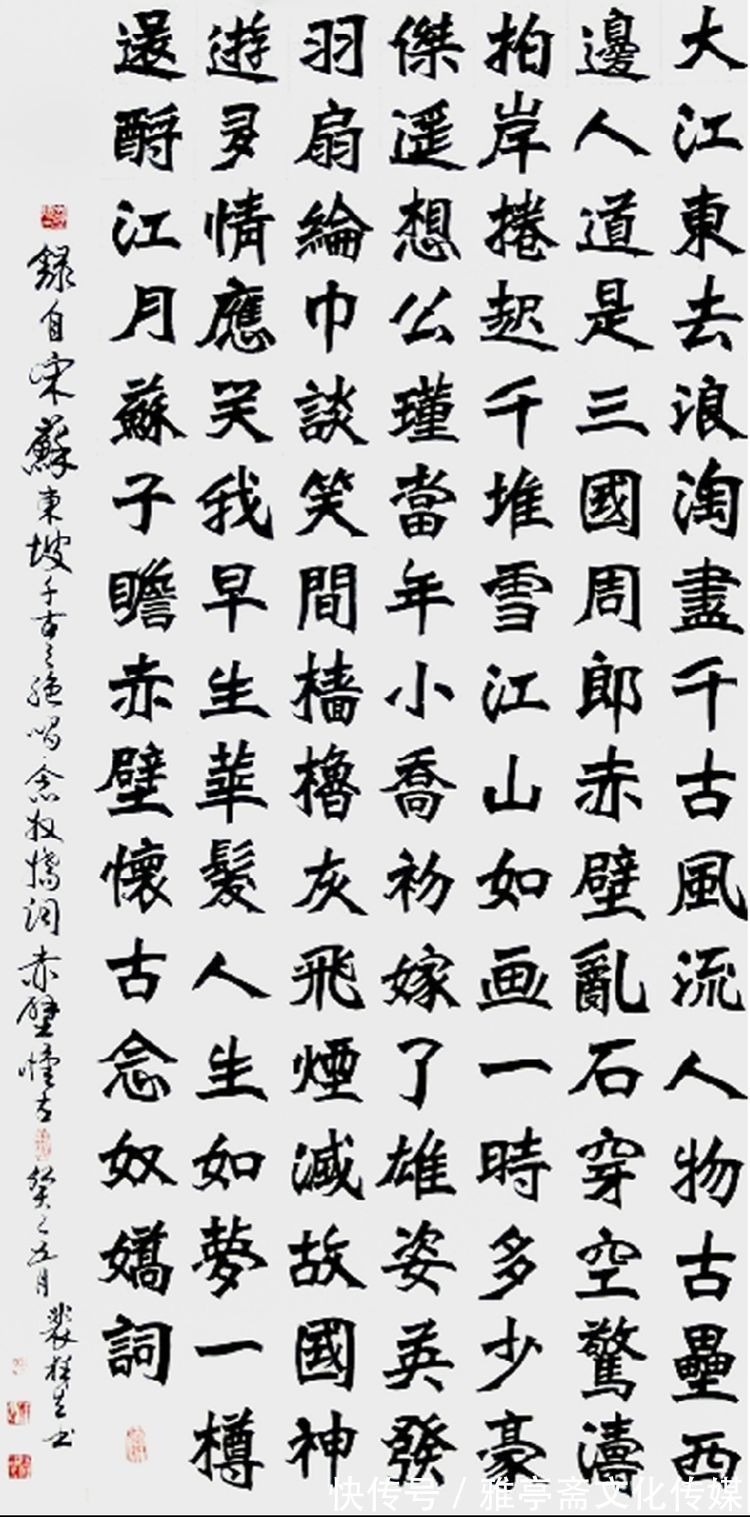 大江東去浪淘盡千古風流人物古壘西
邊人道是三國周郎赤壁亂石穿空驚濤
拍岸捲起千堆雪江山如画一時多少豪
傑遥想公瑾當年小喬初嫁了雄姿英發
羽扇綸巾談笑間檣櫓灰飛煙滅故國神
遊多情應笑我早生華髮人生如夢一樽
還酹江月蘇子瞻赤壁懷古念奴嬌詞
録自宋蘇東坡千古之绝唱念奴嬌词赤壁懷古癸巳五月裴书
快传号 / 雅亭斋文化传媒